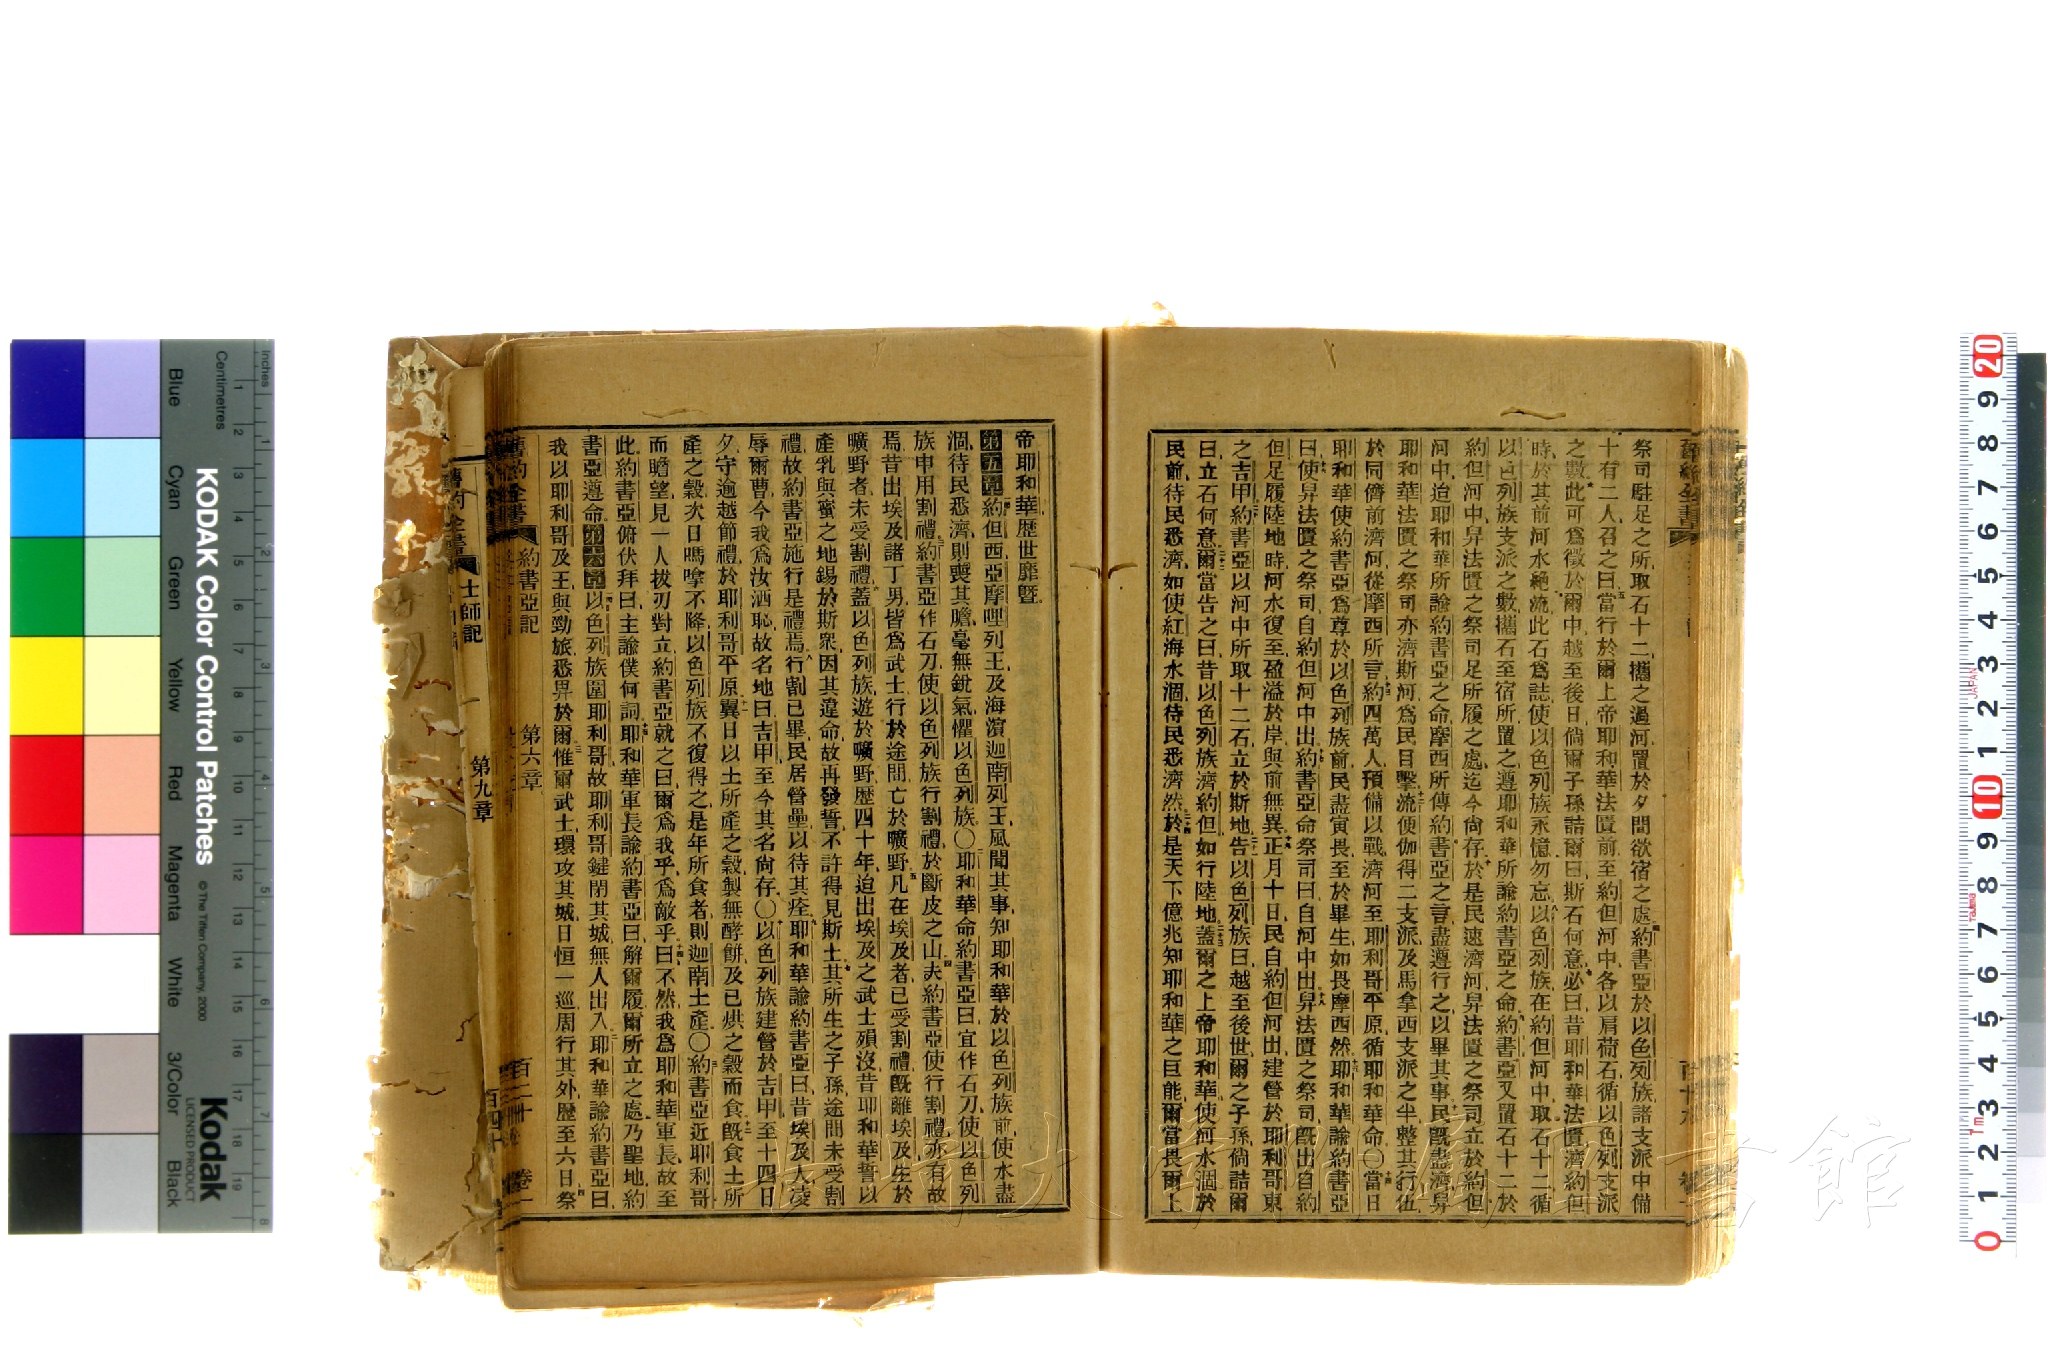 祭司駐足之所取石十二攜之過河置於夕間欲宿之處約書亞於以色列族諸支派中備
十有二人召之曰當行於爾上帝耶和華法匱前至約但河中各以肩荷石循以色列支派
之數此可爲徵於爾中越至後日倘爾子孫詰爾曰斯石何意必曰昔耶和華法匱濟約但
時於其前河水絕流此石爲誌使以色列族永憶勿忘以色列族在約但河中取石十二循
以色列族支派之數攜石至宿所置之遵耶和華所諭約書亞之命約書亞又置石十二於
約但河中舁法匱之祭司足所履之處迄今尙存於是民速濟河舁法匱之祭司立於約但
河中迨耶和華所諭約書亞之命摩西所傳約書亞之言盡遵行之以畢其事民旣盡濟舁
耶和華法匱之祭司亦濟斯河爲民目擊流便伽得二支派及馬拿西支派之半整其行伍
於同儕前濟河從摩西所言約四萬人預備以戰濟河至耶利哥平原循耶和華命〇當日
耶和華使約書亞爲尊於以色列族前民盡寅畏至於畢生如畏摩西然耶和華諭約書亞
曰使舁法匱之祭司自約但河中出約書亞命祭司曰自河中出舁法匱之祭司旣出自約
但足履陸地時河水復至盈溢於岸與前無異正月十日民自約但河出建營於耶利哥東
之吉甲約書亞以河中所取十二石立於斯地告以色列族曰越至後世爾之子孫倘詰爾
曰立石何意爾當告之曰昔以色列族濟約但如行陸地蓋爾之上帝耶和華使河水涸於
民前待民悉濟如使紅海水涸待民悉濟然於是天下億兆知耶和華之巨能爾當畏爾上
帝耶和華歷世靡曁
第五章約但西亞摩哩列王及海濵迦南列王風聞其事知耶和華於以色列族前使水盡
涸待民悉濟則喪其膽毫無銳氣懼以色列族〇耶和華命約書亞曰宜作石刀使以色列
族申用割禮約書亞作石刀使以色列族行割禮於斷皮之山夫約書亞使行割禮亦有故
焉昔出埃及諸丁男皆爲武士行於途間亡於曠野凡在埃及者已受割禮旣離埃及生於
曠野者未受割禮蓋以色列族遊於曠野歷四十年迨出埃及之武士殞沒昔耶和華誓以
產乳與蜜之地錫於斯衆因其違命故再發誓不許得見斯土其所生之子孫途間未受割
禮故約書亞施行是禮焉行割已畢民居營壘以待其痊耶和華諭約書亞曰昔埃及人凌
辱爾曹今我爲汝洒恥故名地曰吉甲至今其名尙存〇以色列族建營於吉甲至十四日
夕守逾越節禮於耶利哥平原翼日以土所產之穀製無酵餅及已烘之穀而食旣食土所
產之穀次日嗎嗱不降以色列族不復得之是年所食者則迦南土產〇約書亞近耶利哥
而瞻望見一人拔刃對立約書亞就之曰爾爲我乎爲敵乎曰不然我爲耶和華軍長故至
此約書亞俯伏拜曰主諭僕何詞耶和華軍長諭約書亞曰解爾履爾所立之處乃聖地約
書亞遵命第六章以色列族圍耶利哥故耶利哥鍵閉其城無人出入耶和華諭約書亞曰
我以耶利哥及王與勁旅悉畀於爾惟爾武士環攻其城日恒一巡周行其外歷至六日祭
舊約全書 約書亞記 第六章 百二十 卷一
舊約全書 士師記 第九章 百四十
KODAK Color Control Patches
© The Tiffen Company, 2000
Kodak
LICENSED PRODUCT
Inches
Centimetres
Blue Cyan Green Yellow Red Magenta White 3/Color Black
JAPAN
1m